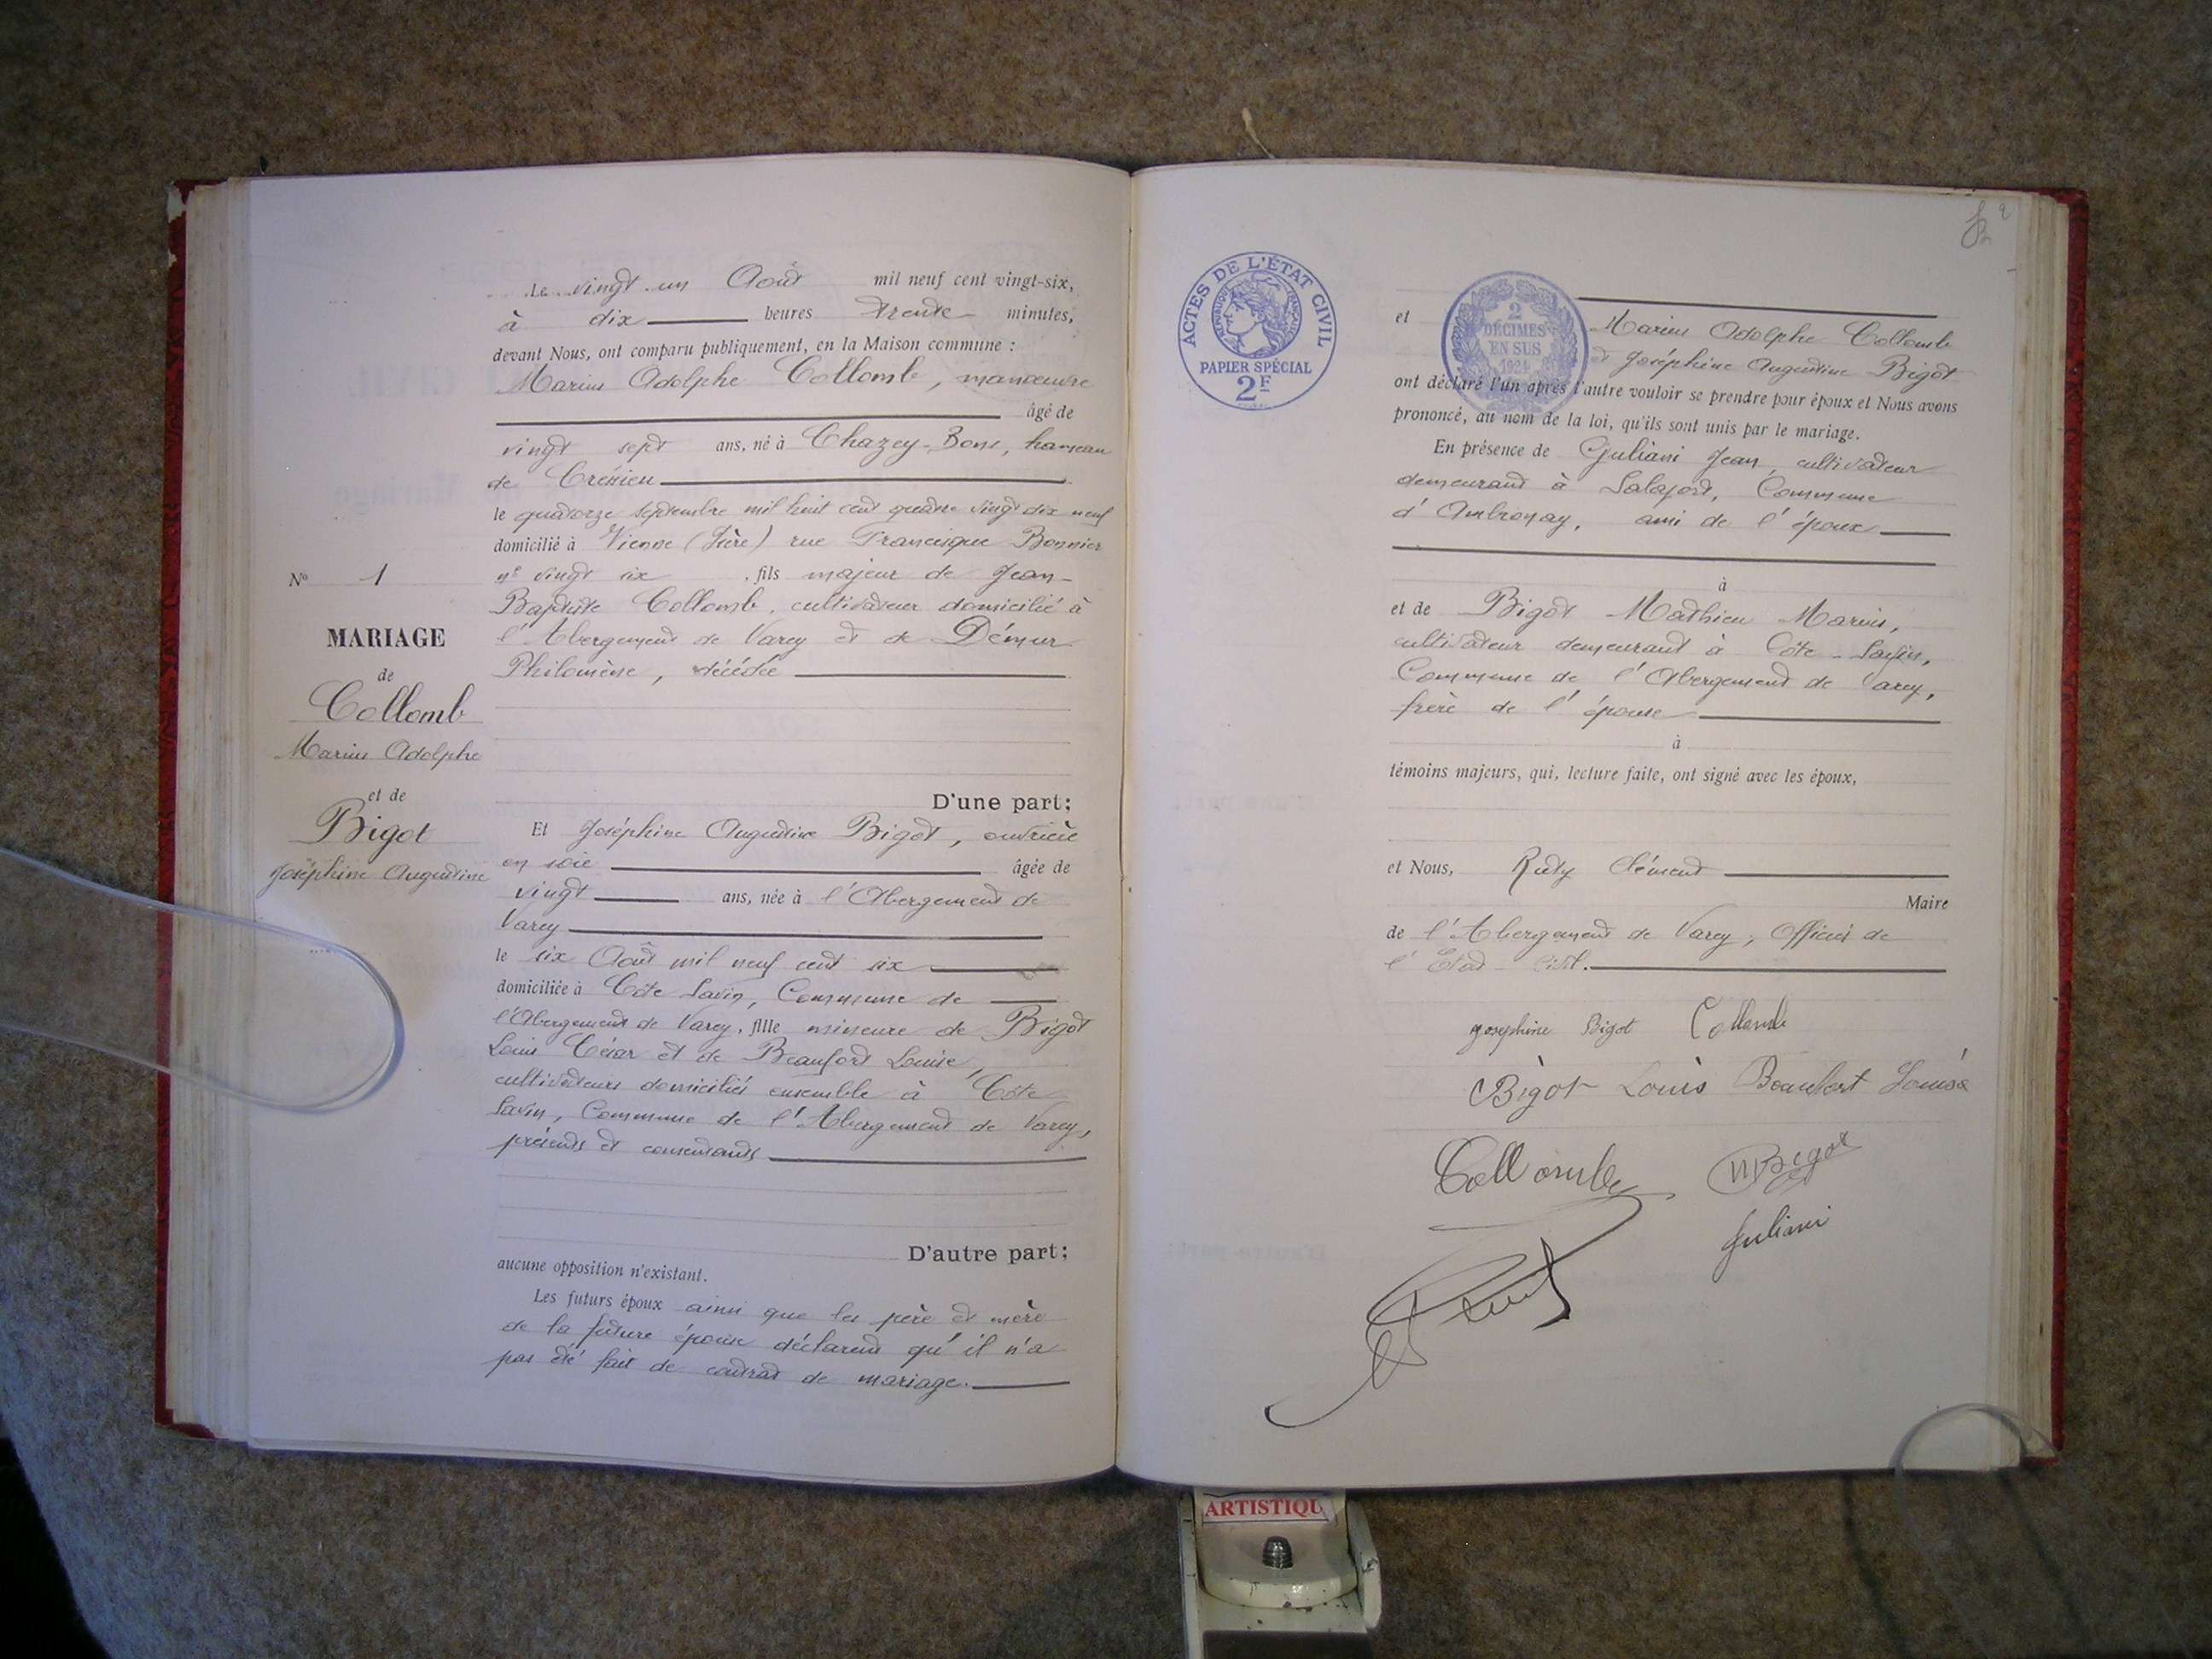 Le vingt-un Août mil neuf cent vingt-six,
à dix heures trente minutes,
devant Nous, ont comparu publiquement, en la Maison commune :
Marius Adolphe Collomb, manœuvre
âgé de
vingt sept ans, né à Chazey-Bons, hameau
de Crésieu
le quatorze septembre mil huit cent quatre vingt dix neuf
domicilié à Vienne (Isère) rue Francisque Bonnier
n° vingt six, fils majeur de Jean-
Baptiste Collomb, cultivateur domicilié à
l'Abergement de Varey et de Démur
Philomène, décédée
N° 1
MARIAGE
de
Collomb
Marius Adolphe
et de
Bigot
Joséphine Augustine
D'une part;
Et Joséphine Augustine Bigot, ouvrière
en soie âgée de
vingt ans, née à l'Abergement de
Varey
le six Août mil neuf cent six
domiciliée à Côte Savin, Commune de
l'Abergement de Varey, fille mineure de Bigot
Louis César et de Beaufort Louise,
cultivateurs domiciliés ensemble à Côte
Savin, Commune de l'Abergement de Varey,
présents et consentants
D'autre part;
aucune opposition n'existant.
Les futurs époux ainsi que les père et mère
de la future épouse déclarent qu'il n'a
pas été fait de contrat de mariage.
ACTES DE L'ÉTAT CIVIL
RÉPUBLIQUE FRANÇAISE
PAPIER SPÉCIAL
2F
2
DÉCIMES
EN SUS
1924
et Marius Adolphe Collomb
et Joséphine Augustine Bigot
ont déclaré l'un après l'autre vouloir se prendre pour époux et Nous avons
prononcé, au nom de la loi, qu'ils sont unis par le mariage.
En présence de Guliani Jean, cultivateur
demeurant à Salaport, Commune
d'Ambronay, ami de l'époux
à
et de Bigot Mathieu Marius,
cultivateur demeurant à Côte-Savin,
Commune de l'Abergement de Varey,
frère de l'épouse
à
témoins majeurs, qui, lecture faite, ont signé avec les époux,
et Nous, Clément
Maire
de l'Abergement de Varey, Officier de
l'Etat-Civil.
Josephine Bigot Collomb
Bigot Louis Beaufort Louise
Collomb M Bigot
Guliani
ARTISTIQU